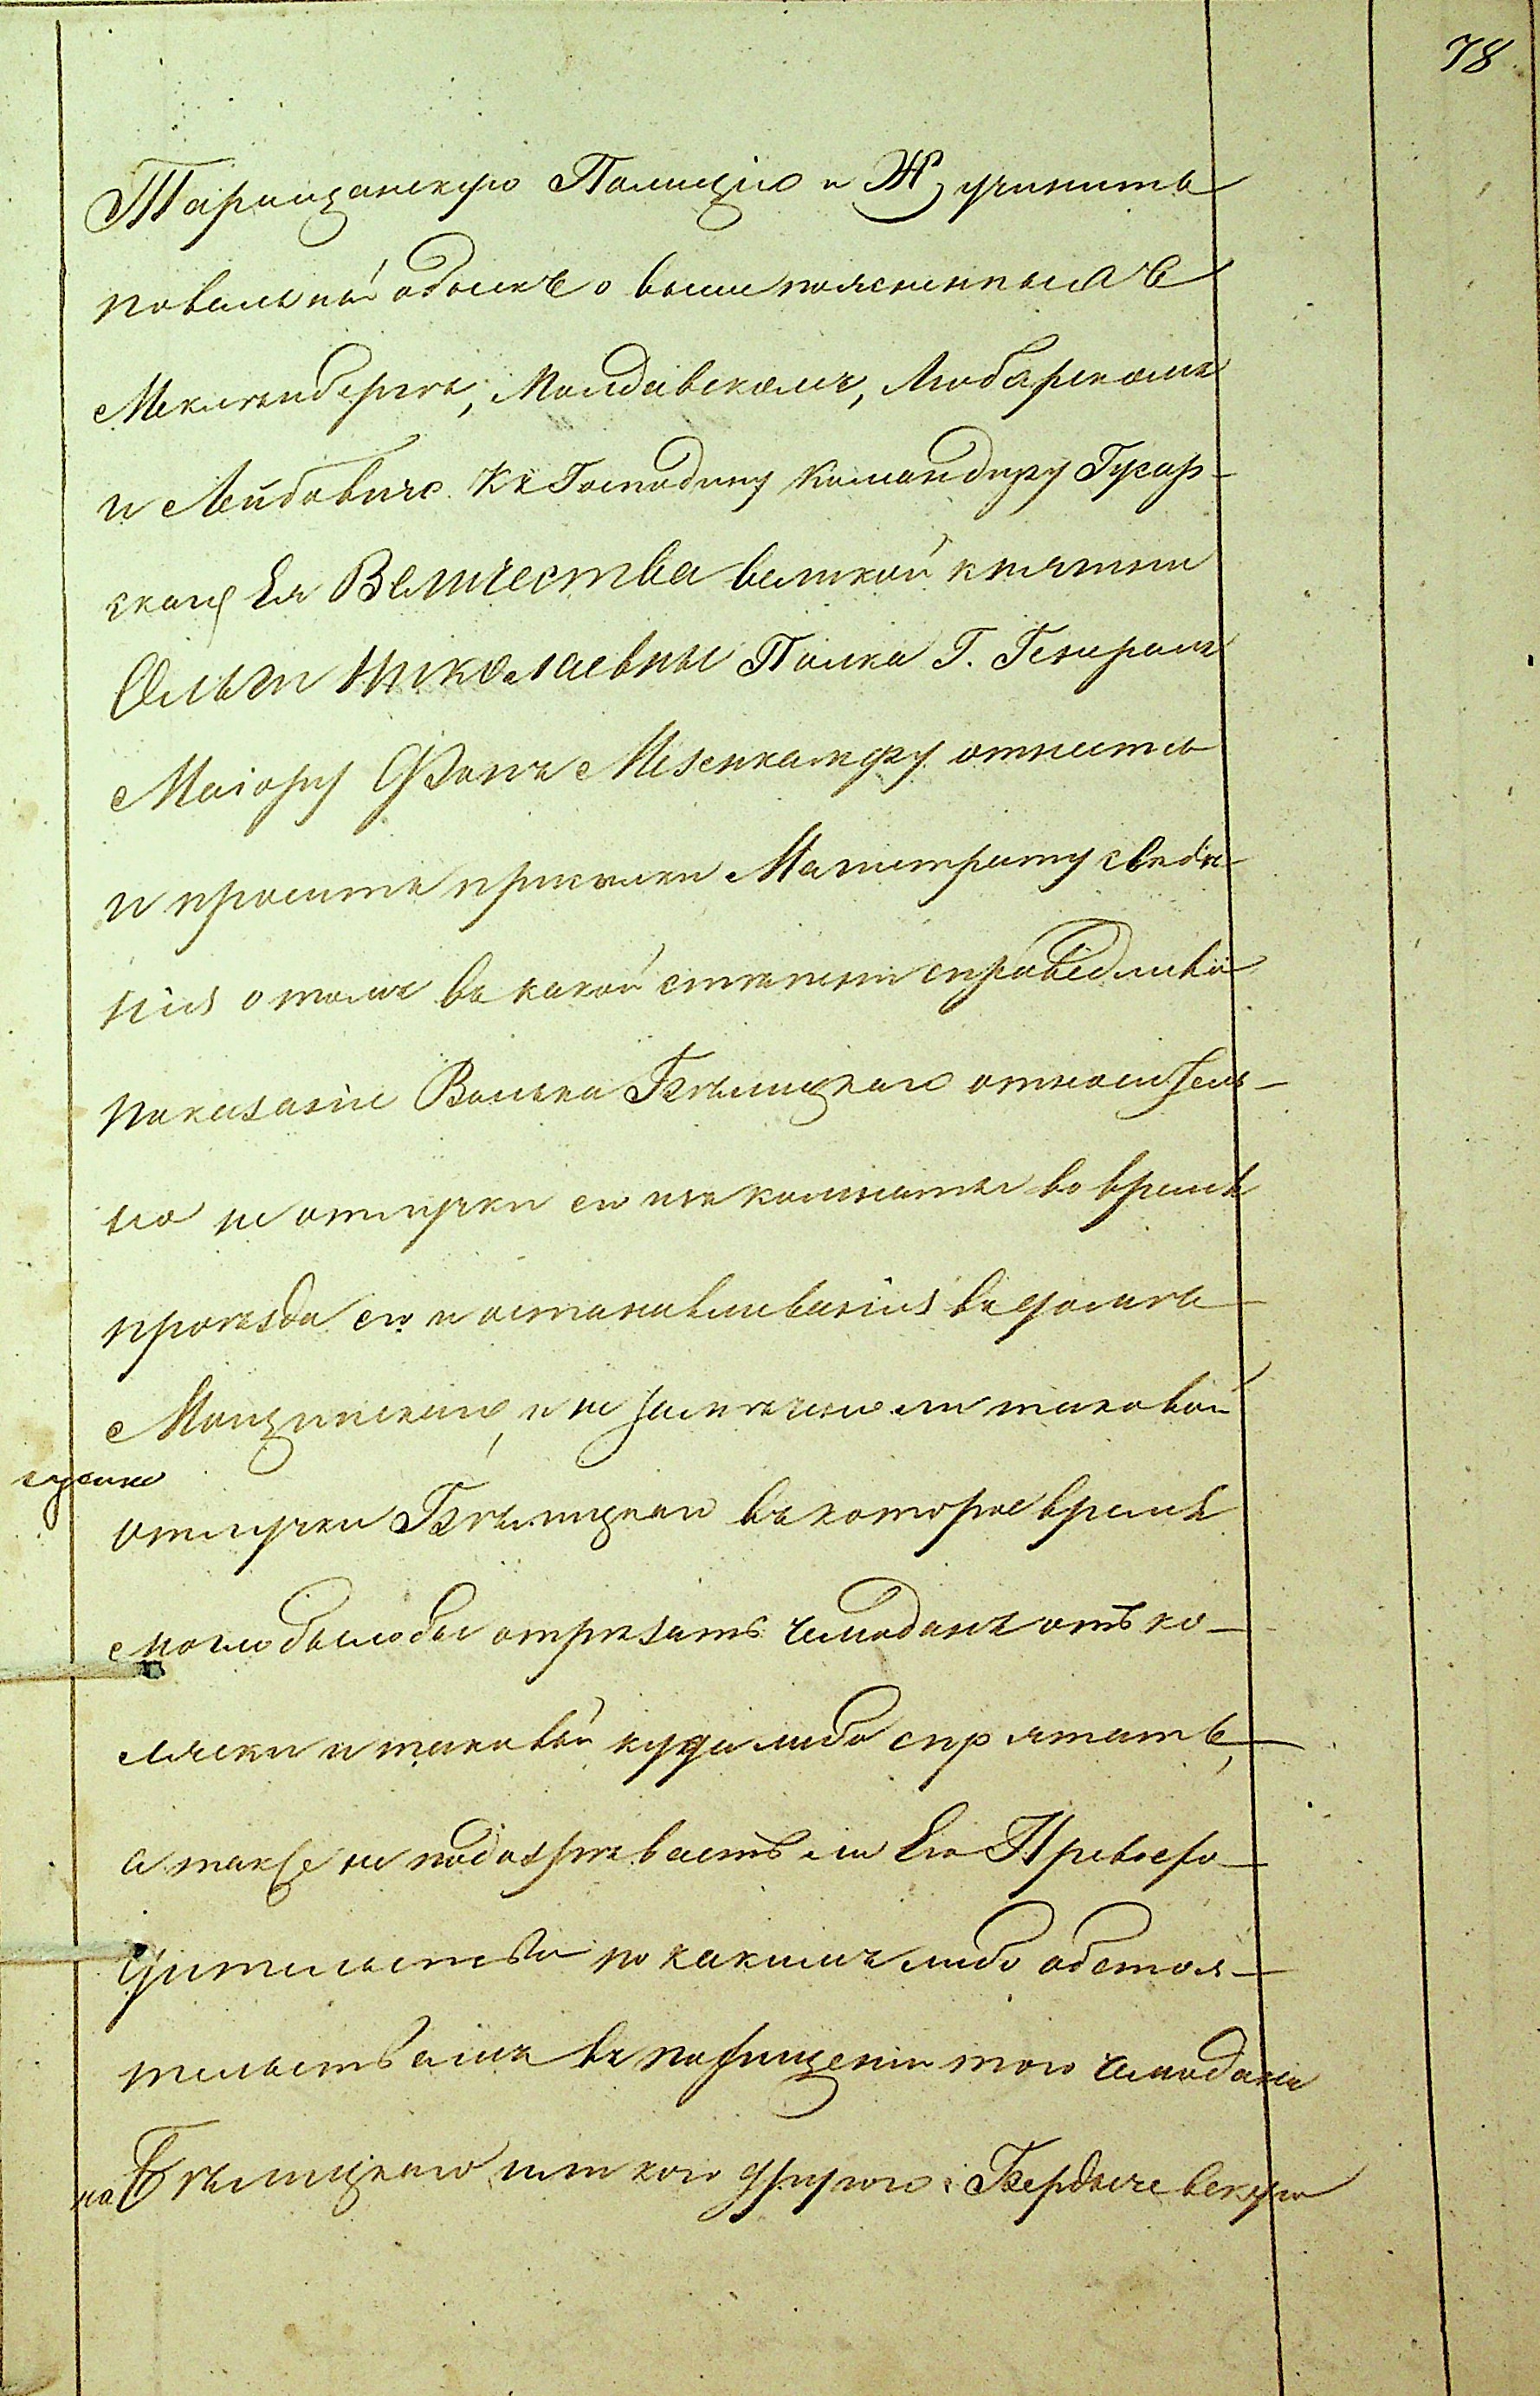 78
Таращанскую Полицію и учинить
повальный обыскъ о выше поясненныхъ
Меклембергѣ, Молдавскомъ, Любарскомъ
и Лейбовичѣ. Къ Господину Командиру Гусар-
скаго Ея Величества великой княжны
Ольги Николаевны Полка Г. Генералъ
Маіору Фонъ Мезенкампфу отнестись
и просить присылки Магистрату свѣдѣ-
нія о томъ въ какой степени справедливо
показаніе Волька Бѣлицкаго относитель-
но не отлучки его изъ комнаты во время
проѣзда его и останавливанія въ домѣ
Мощинскаго, и не замѣчено ли таковой
отлучки Бѣлицкаго въ которое время
могло было бы отрѣзать чемоданъ отъ ко-
ляски и таковый куда либо спрятать,
а также не подозрѣваетъ ли Его Превосхо-
дительство по какимъ либо обстоя-
тельствамъ въ похищеніи того чемодана
на Бѣлицкаго или кого другого; Бердычевскую